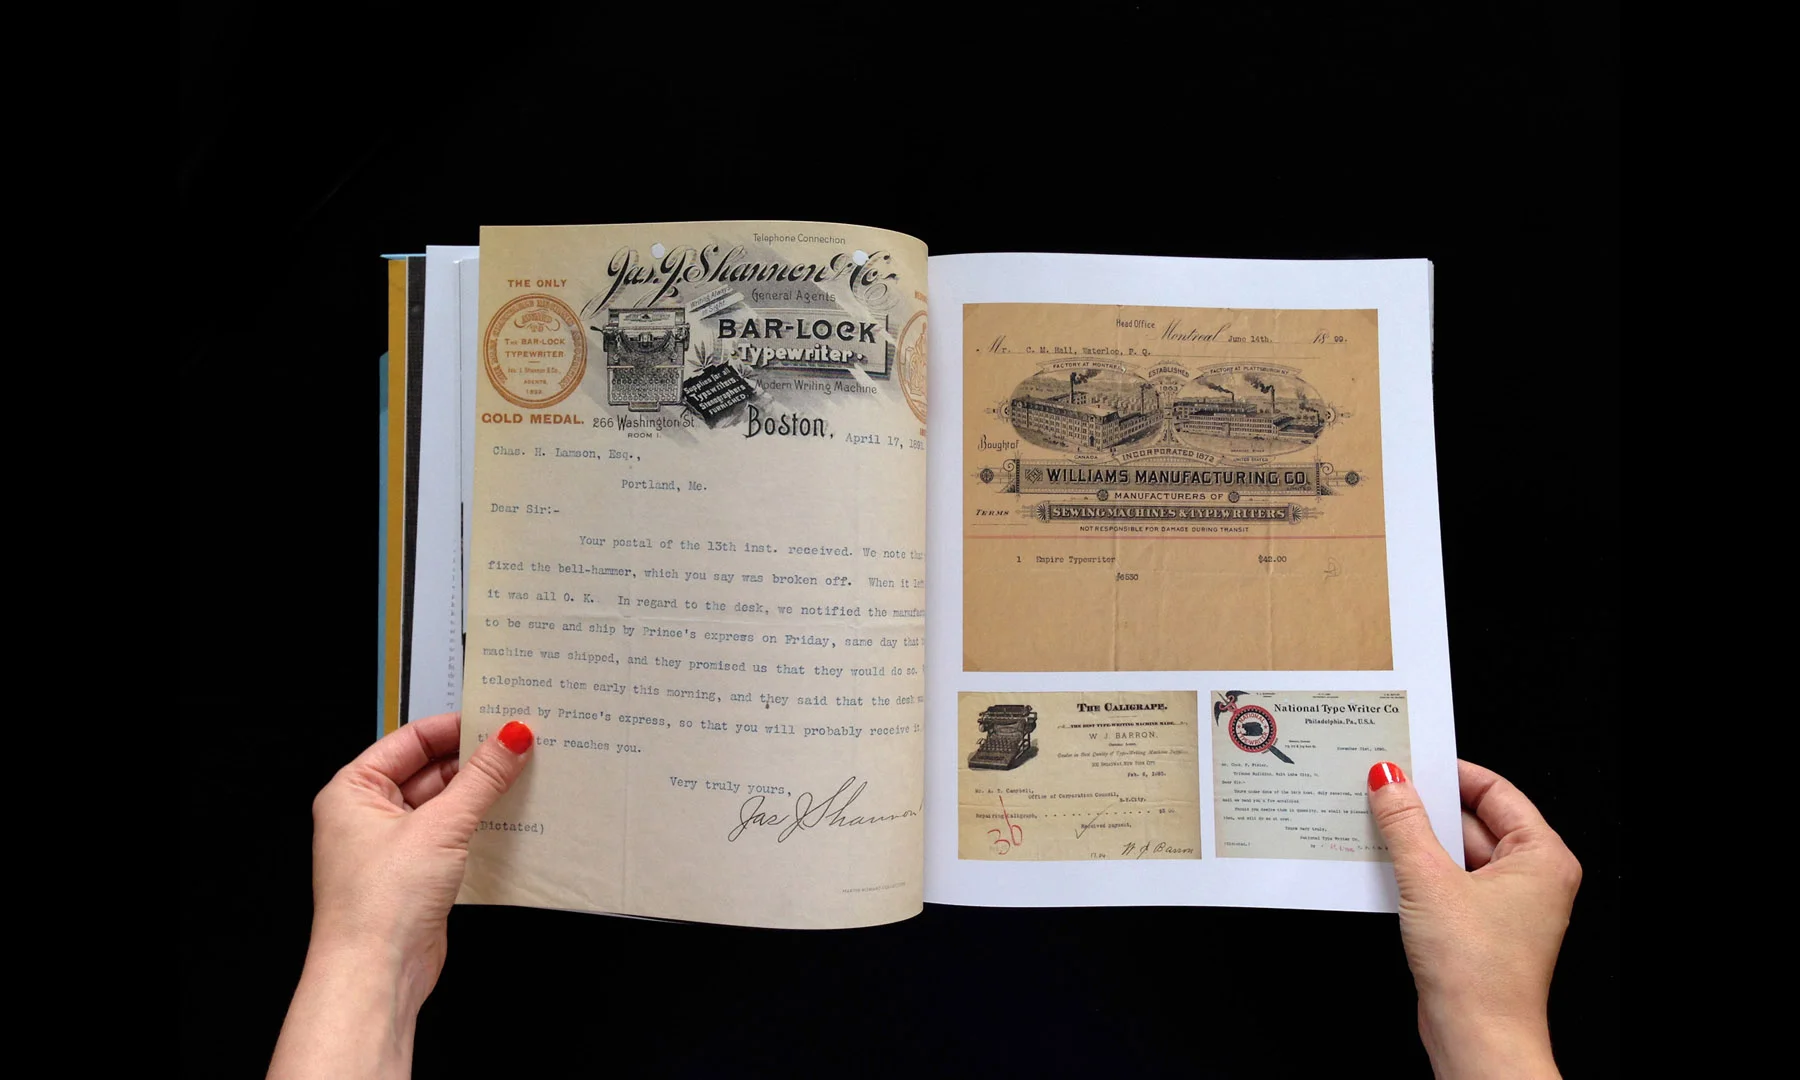 Telephone Connection
Jas. J. Shannon & Co
THE ONLY
General Agents
Writing Always in Sight.
BAR-LOCK
Typewriter.
AWARD TO
THE BAR-LOCK
TYPEWRITER
AGENTS,
Supplies for all
Typewriters.
Stenographers
FURNISHED.
Modern Writing Machine
GOLD MEDAL.
266 Washington St
ROOM 1.
Boston,
April 17, 189
Chas. H. Lamson, Esq.,
Portland, Me.
Dear Sir:-
Your postal of the 13th inst. received. We note
fixed the bell-hammer, which you say was broken off. When it
it was all O. K. In regard to the desk, we notified the
to be sure and ship by Prince's express on Friday, same day that
machine was shipped, and they promised us that they would do so.
telephoned them early this morning, and they said that the desk
shipped by Prince's express, so that you will probably receive it
reaches you.
Very truly yours,
Jas J Shannon
(Dictated)
Head Office
Montreal June 14th. 1899.
Mr. C. M. Hall, Waterloo, P. Q.
FACTORY AT MONTREAL
ESTABLISHED
1863
FACTORY AT PLATTSBURGH NY
Bought of
CANADA
INCORPORATED 1872
UNITED STATES
WILLIAMS MANUFACTURING CO.
LIMITED
MANUFACTURERS OF
TERMS
SEWING MACHINES & TYPEWRITERS
NOT RESPONSIBLE FOR DAMAGE DURING TRANSIT
1 Empire Typewriter $42.00
#6530
THE CALIGRAPH.
THE BEST TYPE-WRITING MACHINE MADE.
W. J. BARRON,
Mr. A. S. Campbell,
Office of Corporation Council,
N.Y.City.
Repairing Caligraph,
36
Received payment,
W J Barron
National Type Writer Co
Philadelphia, Pa., U.S.A.
NATIONAL
Dear Sir:-
Yours very truly,
National Type Writer Co.
(Dictated.)